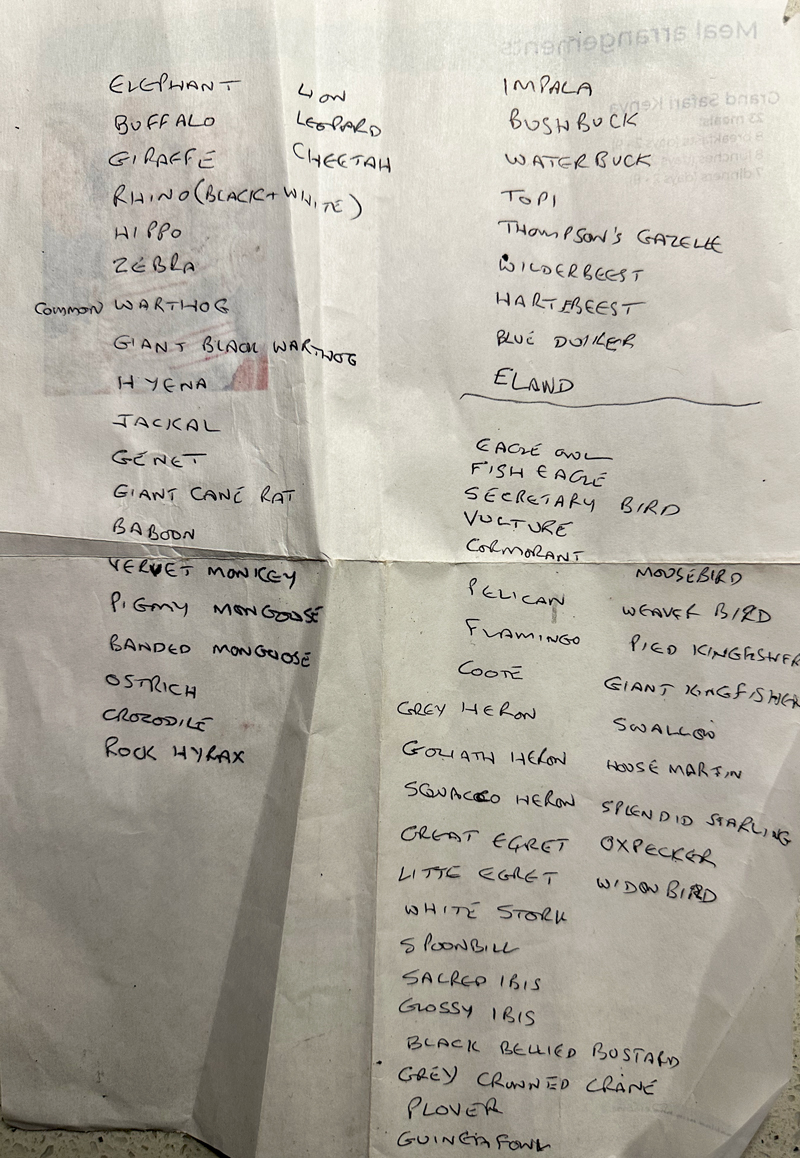 ELEPHANT
BUFFALO
GIRAFFE
RHINO (BLACK + WHITE)
HIPPO
ZEBRA
COMMON WARTHOG
GIANT BLACK WARTHOG
HYENA
JACKAL
GENET
GIANT CANE RAT
BABOON
VERVET MONKEY
PIGMY MONGOOSE
BANDED MONGOOSE
OSTRICH
CROCODILE
ROCK HYRAX
LION
LEOPARD
CHEETAH
IMPALA
BUSHBUCK
WATERBUCK
TOPI
THOMPSON'S GAZELLE
WILDERBEEST
HARTEBEEST
BLUE DUIKER
ELAND
EAGLE OWL
FISH EAGLE
SECRETARY BIRD
VULTURE
CORMORANT
PELICAN
FLAMINGO
COOTE
GREY HERON
GOLIATH HERON
SQUACCO HERON
GREAT EGRET
LITTE EGRET
WHITE STORK
SPOONBILL
SACRED IBIS
GLOSSY IBIS
BLACK BELLIED BUSTARD
GREY CROWNED CRANE
PLOVER
GUINEAFOWL
MOUSEBIRD
WEAVER BIRD
PIED KINGFISHER
GIANT KINGFISHER
SWALLOW
HOUSE MARTIN
SPLENDID STARLING
OXPECKER
WIDOWBIRD
Meal arrangements
Grand Safari Kenya
23 meals: